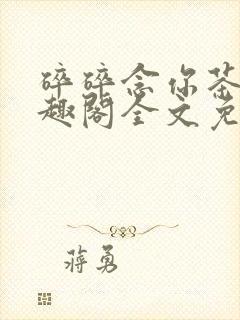 碎碎念你茶
趣阁全文免
蒋勇